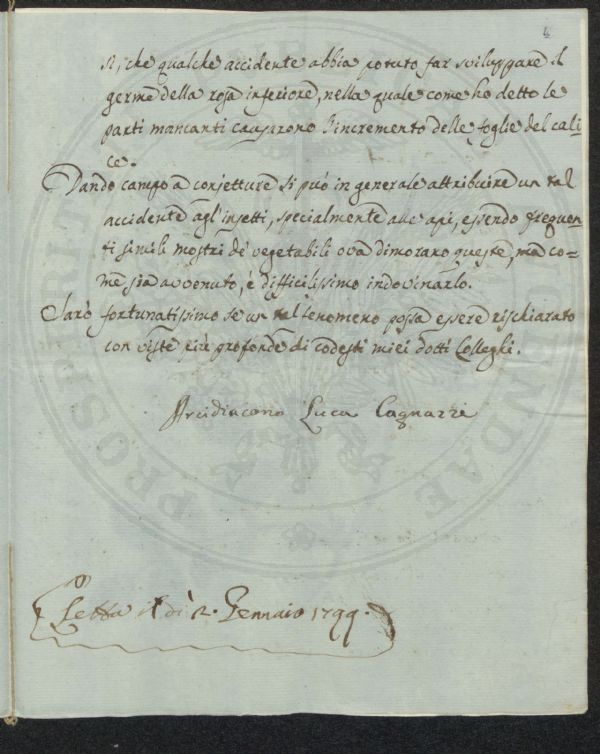 4
si, che qualche accidente abbia potuto far sviluppare il
germe della rosa inferiore, nella quale come ho detto le
parti mancanti causarono l'incremento delle foglie del cali-
ce.
Dando campo a conjetture si può in generale attribuire un tal
accidente agl'insetti, specialmente alle api, essendo frequen-
ti simili mostri de' vegetabili ova dimorano queste, ma co-
me sia avvenuto, è difficilissimo indovinarlo.
Sarò fortunatissimo se un tal fenomeno possa essere rischiarato
con viste più profonde di codesti miei dotti Colleghi.
Arcidiacono Luca Cagnazzi
Letta il dì 2. Gennaio 1799.
PROSPERITA
GENDAE